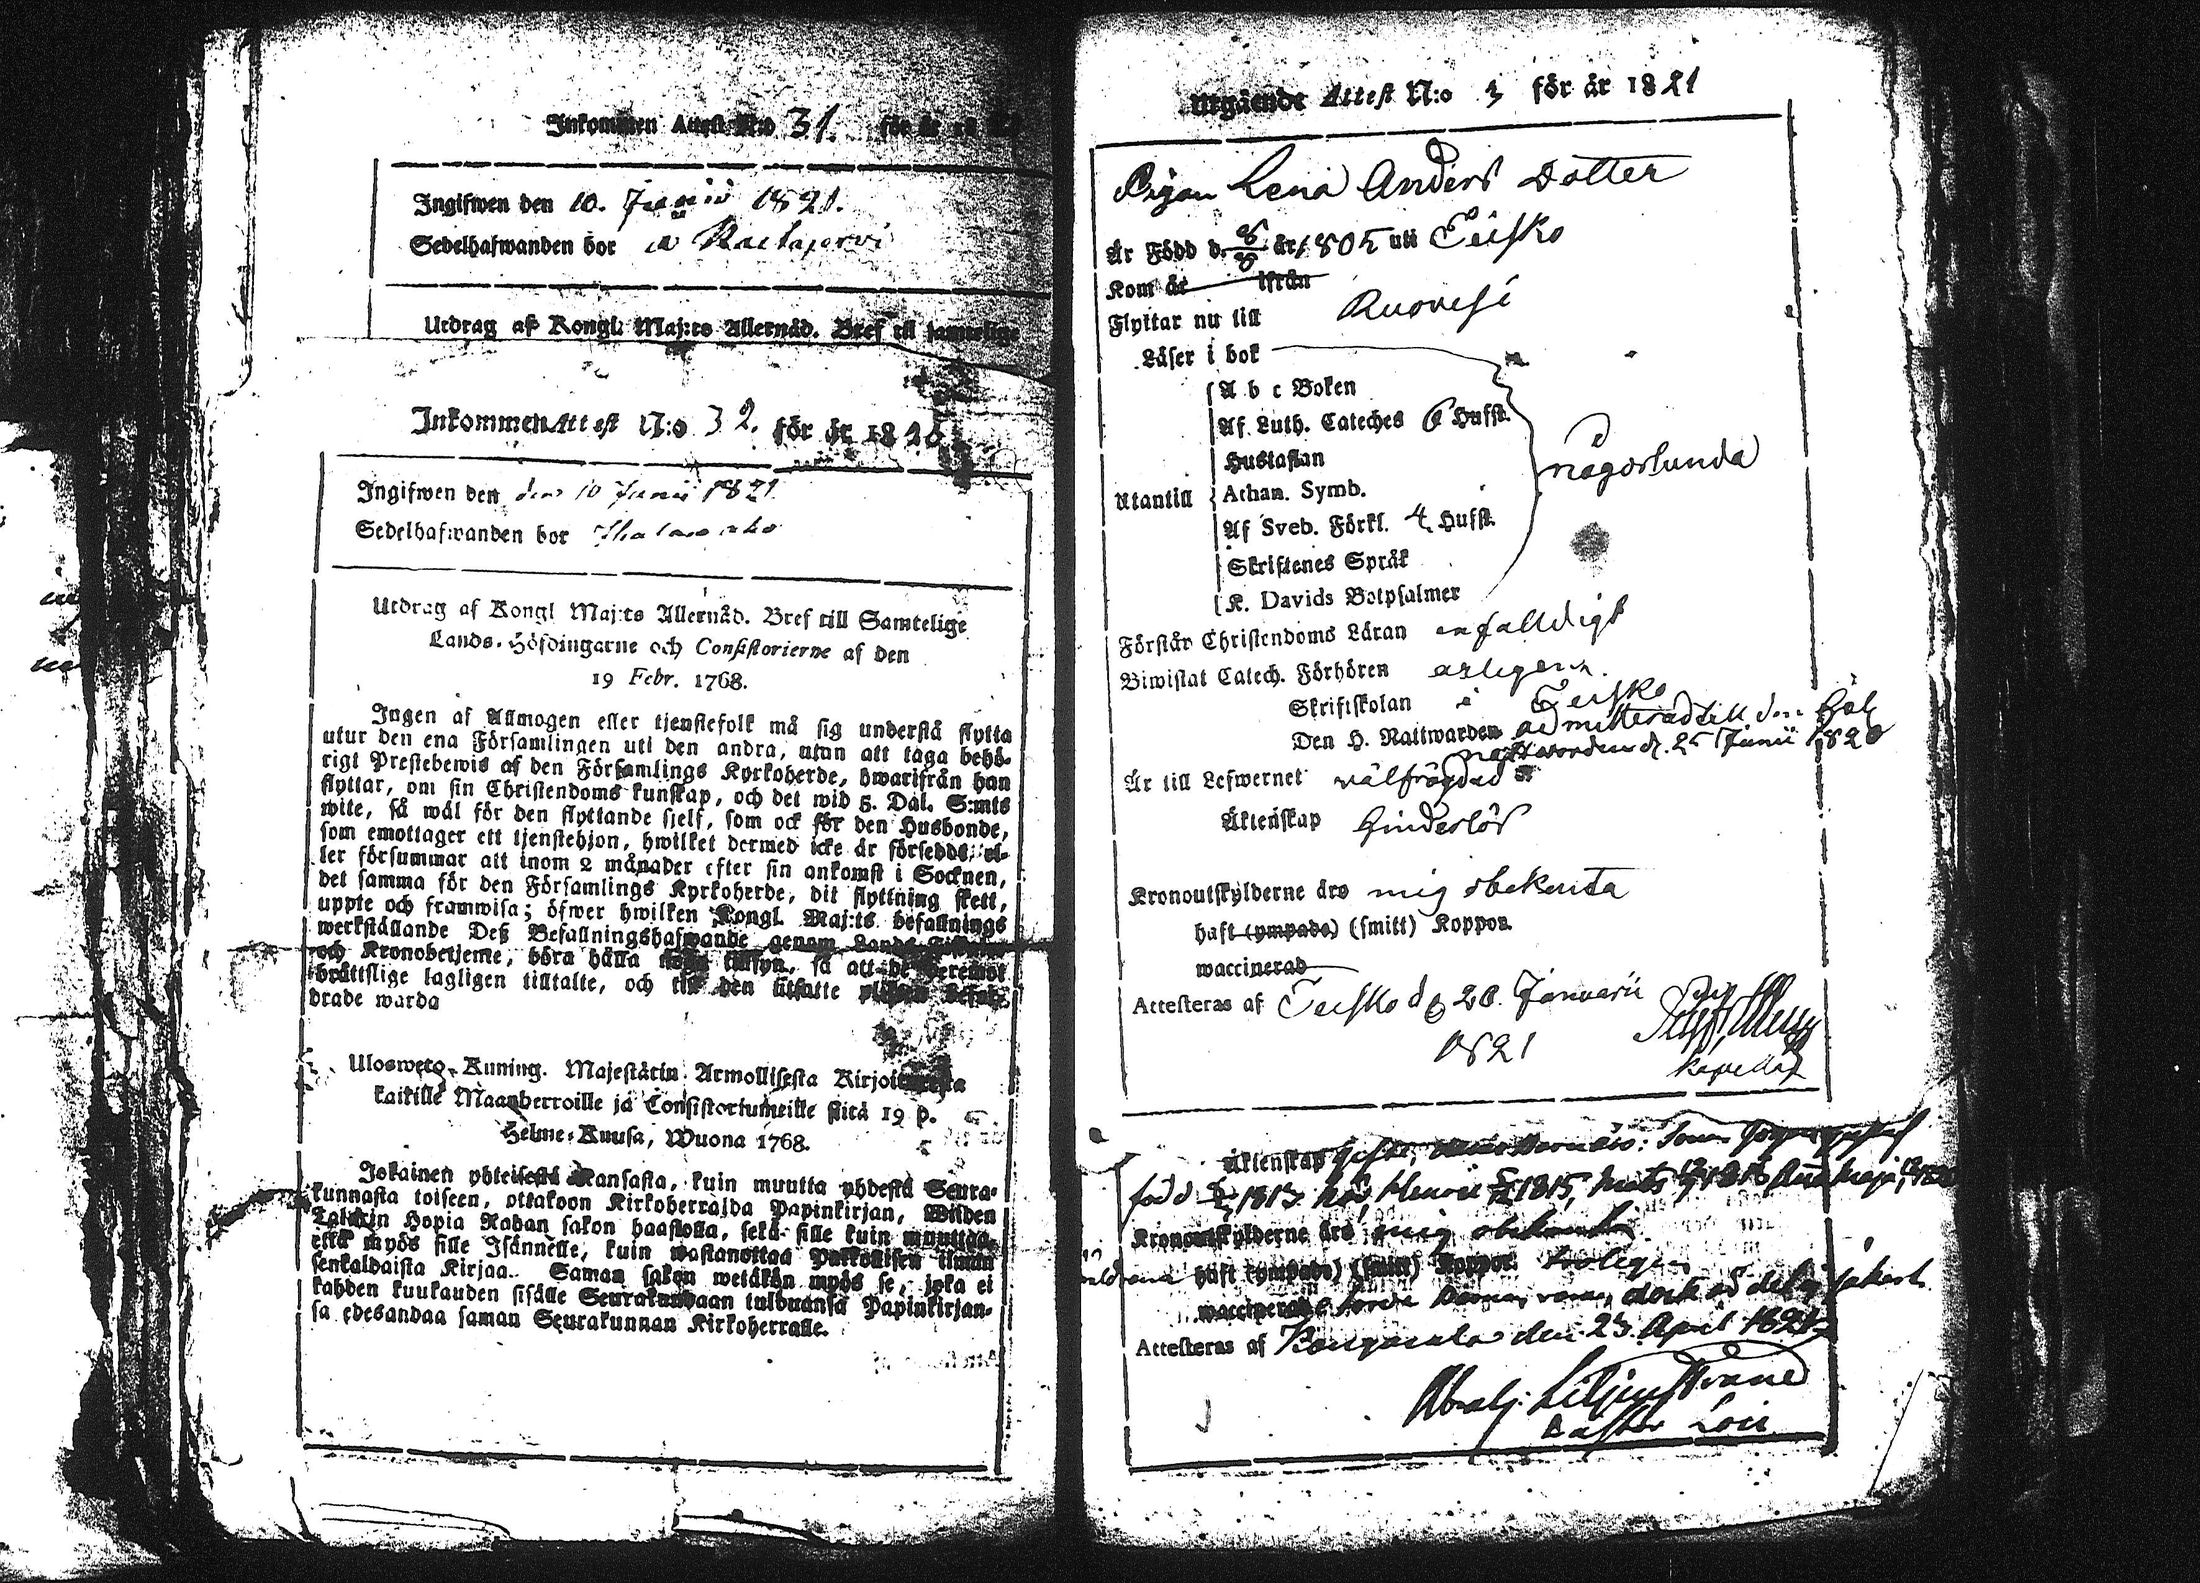 Inkommen Attest N:o 31. för år 18
Ingifwen den 10. Junii 1821.
Sedelhafwanden bor
Utdrag af Kongl. Maj:ts Allernåd. Bref till samtelige
Inkommen Attest N:o 32. för år 18
Ingifwen den den 10 Junii 1821
Sedelhafwanden bor
Utdrag af Kongl Maj:ts Allernåd. Bref till Samtelige
Lands-Höfdingarne och Consistorierne af den
19 Febr. 1768.
Ingen af Allmogen eller tjenstefolk må sig understå flytta
utur den ena Församlingen uti den andra, utan att taga behö-
rigt Prestebewis af den Församlings Kyrkoherde, hwarifrån han
flyttar, om sin Christendoms kunskap, och det wid 5. Dal. S:mts
wite, så wäl för den flyttande sjelf, som ock för den Husbonde,
som emottager ett tjenstehjon, hwilket dermed icke är försedd, el-
ler försummar att inom 2 månader efter sin ankomst i Socknen,
det samma för den Församlings Kyrkoherde, dit flyttning skett,
uppte och framwisa; öfwer hwilken Kongl. Maj:ts befallnings
werkställande Deß Befallningshafwande genom Lands-
och Kronobetjente, böra hålla noga tillsyn, så att de deremot
bråttslige lagligen tilltalte, och till den utsatte
drade warda
Ulosweto Kuning. Majestätin Armollisesta Kirjoituxesta
kaikille Maanherroille ja Consistoriumeille siitä 19 p.
Helme-Kuusa, Wuona 1768.
Jokainen yhteisestä Kansasta, kuin muutta yhdestä Seura-
kunnasta toiseen, ottakoon Kirkoherralda Papinkirjan, Wiiden
Talarin Hopia Rahan sakon haastolla, sekä sille kuin muuttaa,
että myös sille Isännelle, kuin wastanottaa Palkollisen ilman
senkaldaista Kirjaa. Saman sakon wetäkön myös se, joka ei
kahden kuukauden sisälle Seurakunhaan tulduansa Papinkirjan-
sa edesandaa saman Seurakunnan Kirkoherralle.
Utgående Attest N:o 3 för år 1821
Pigan Lena Anders Dotter
Är Född d. år 1805 uti Teisko
Kom år ifrån
Flyttar nu till Ruovesi
Läser i bok
A b c Boken
Af Luth. Cateches 6 Hufst.
Hustaflan
någorlunda
Utantill Athan. Symb.
Af Sveb. Förkl. 4 Hufst.
Skriftenes Språk
K. Davids Botpsalmer
Förstår Christendoms Läran enfalldigt
Biwistat Catech. Förhören arligen
Skriftskolan i Teisko
Den H. Nattwarden admitterad till den Hel.
nattwarden d. 25 Junii 1820
Är till Lefwernet välfrägdad
Äktenskap Hinderlös
Kronoutskylderne äro mig obekenta
haft (ympade) (smitt) Koppor.
waccinerad
Attesteras af Teisko d. 20. Januarii
1821
Äktenskap
född 1813 1815,
Kronoutskylderne äro mig obekante
haft (ympade) (smitt) Koppor troligen
waccinerad
Attesteras af Kangasala den 23 April 1821
Abrah. Liljenstrand
Pastor Loci